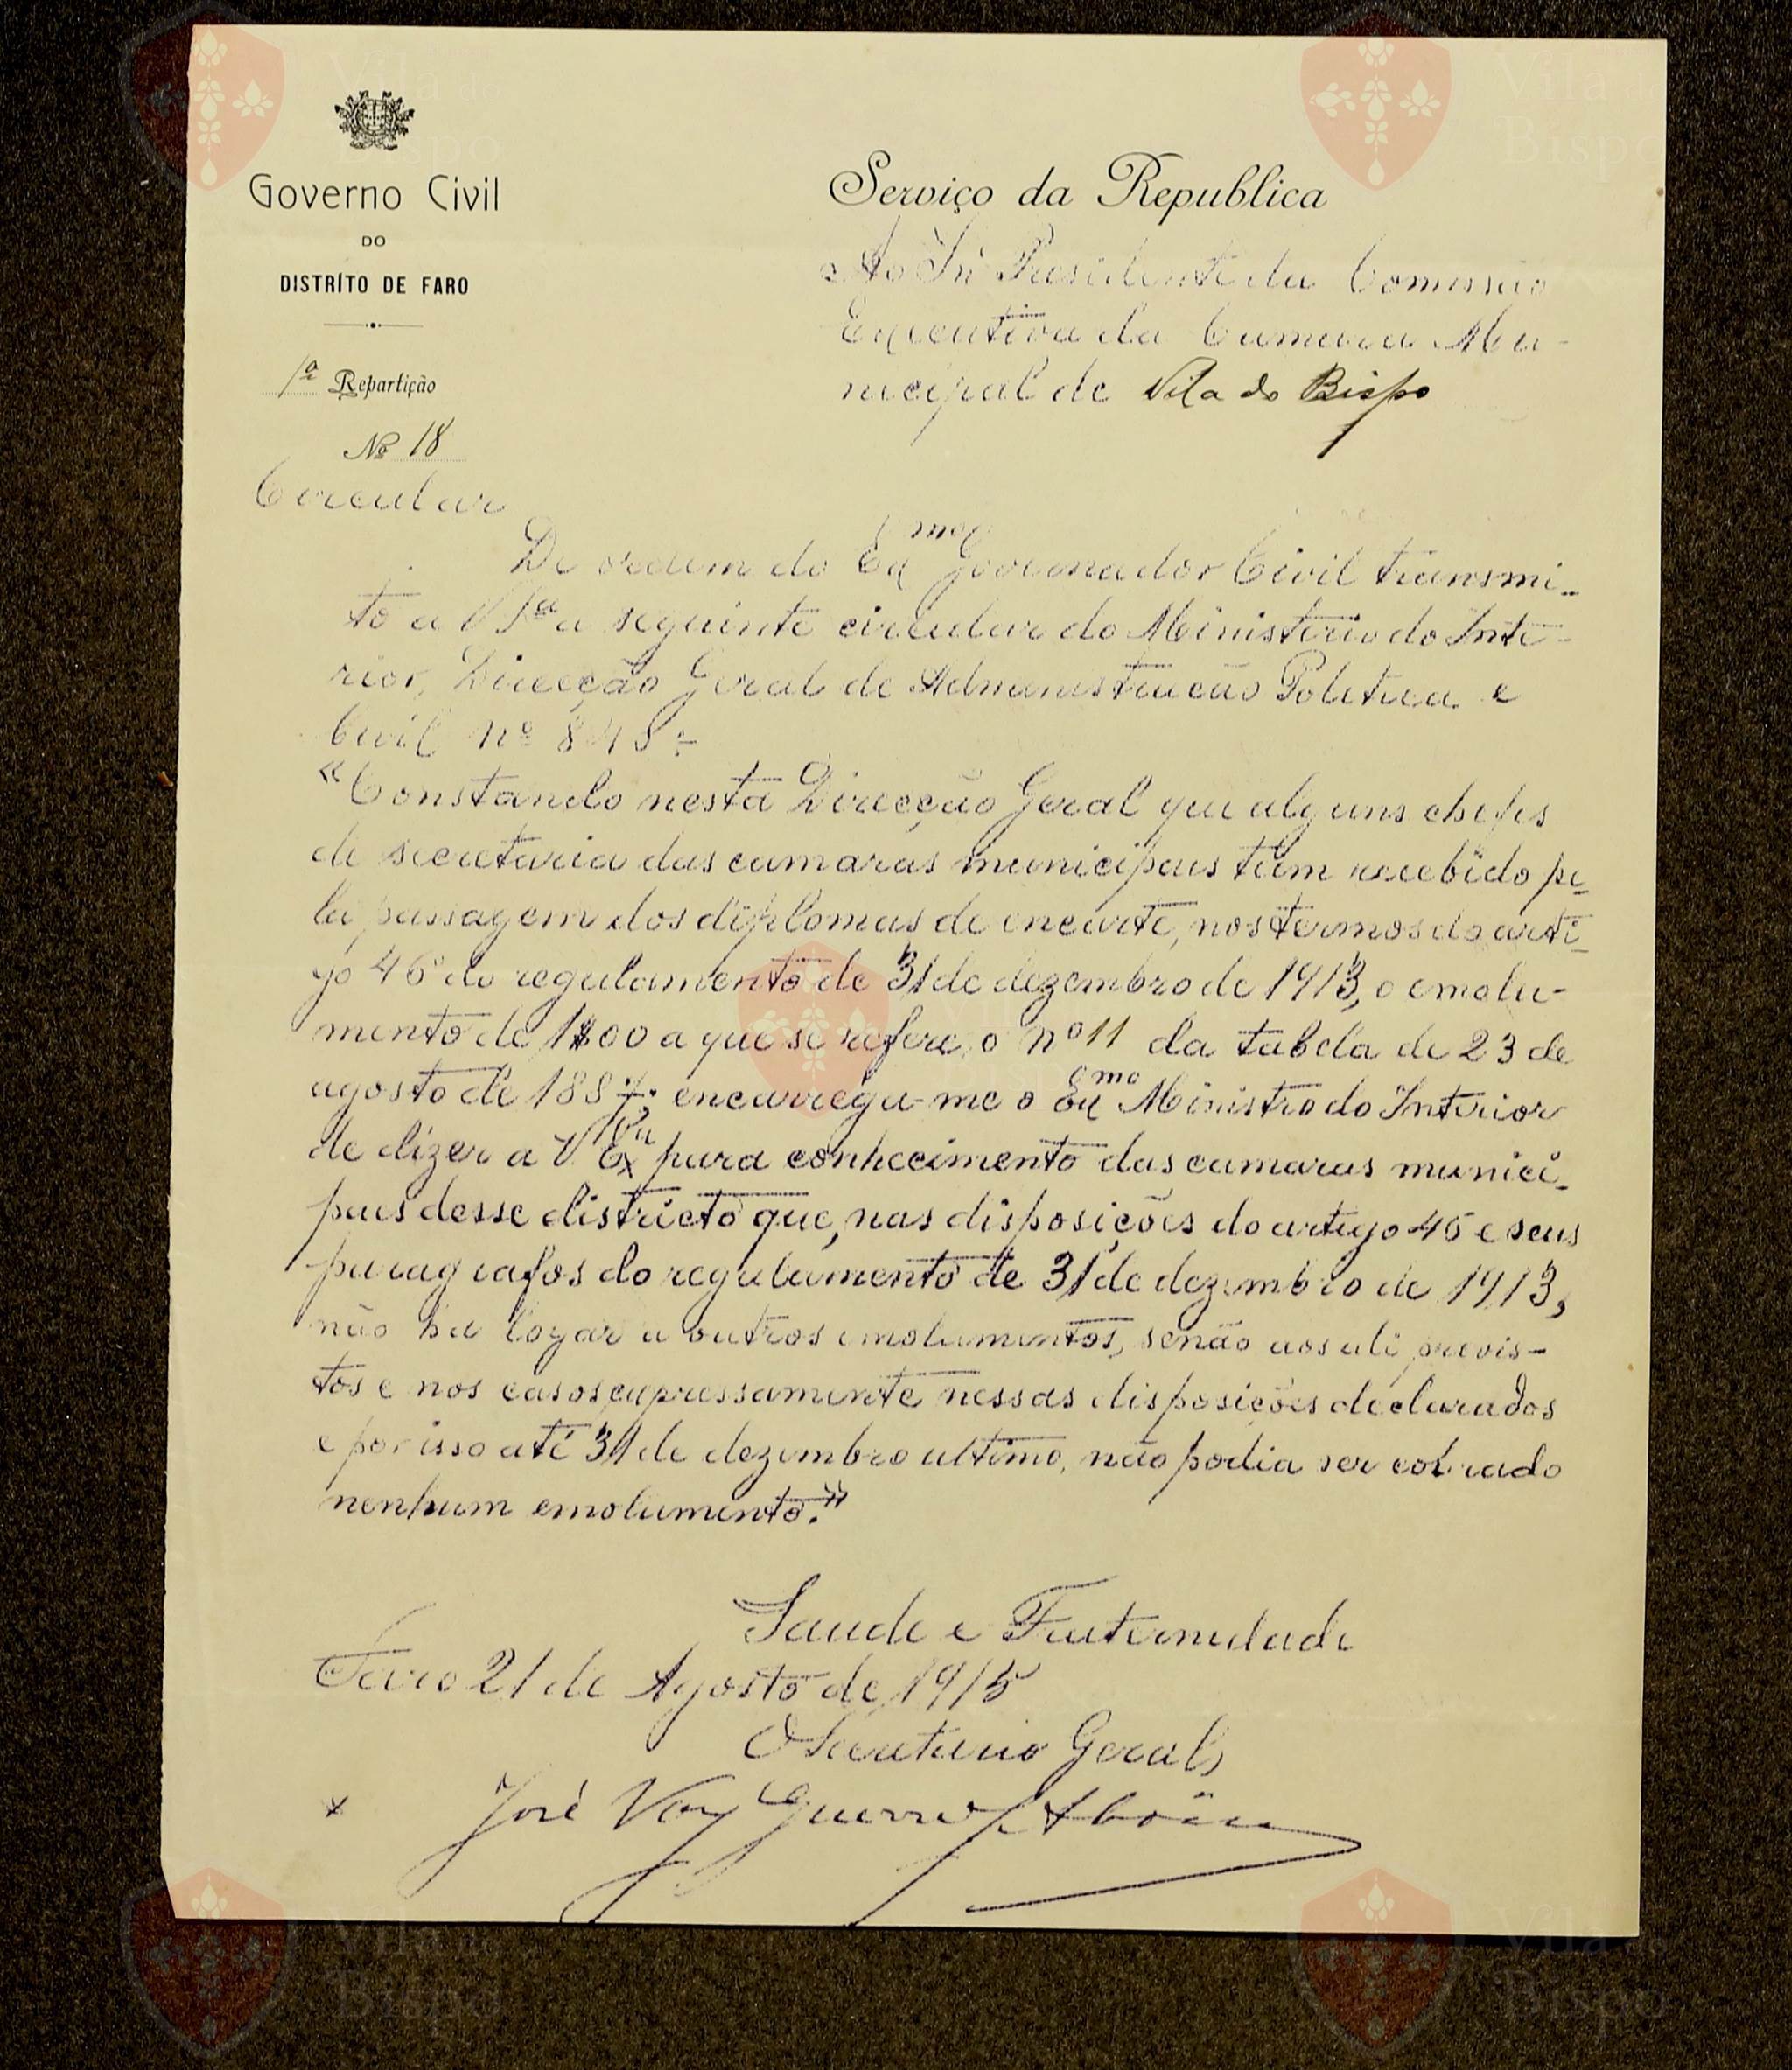 Governo Civil
DO
DISTRÍTO DE FARO
1ª Repartição
Nº 18
Circular
Serviço da Republica
Ao Snr Presidente da Comissão
Executiva da Camara Mu-
nicipal de Vila do Bispo
De ordem do Exmo Governador Civil transmi-
to a V Sa a seguinte circular do Ministerio do Inte-
rior, Direcção Geral de Administração Politica e
Civil nº 848:
"Constando nesta Direcção Geral que alguns chefes
de secretaria das camaras municipaes têem recebido pe-
la passagem dos diplomas de encarte, nos termos do arti-
go 46º do regulamento de 31 de dezembro de 1913, o emolu-
mento de 1$00 a que se refere o nº 11 da tabela de 23 de
agosto de 1887; encarrega-me o Exmo Ministro do Interior
de dizer a V. Exa para conhecimento das camaras munici-
paes desse districto que, nas disposições do artigo 45 e seus
paragrafos do regulamento de 31 de dezembro de 1913,
não ha logar a outros emolumentos, senão aos ali previs-
tos e nos casos expressamente nessas disposições declarados
e por isso até 31 de dezembro ultimo, não podia ser cobrado
nenhum emolumento."
Saude e Fraternidade
Faro 21 de Agosto de 1915
O Secretario Geral,
José Vaz Guerreiro Aboim
Vila do
Bispo